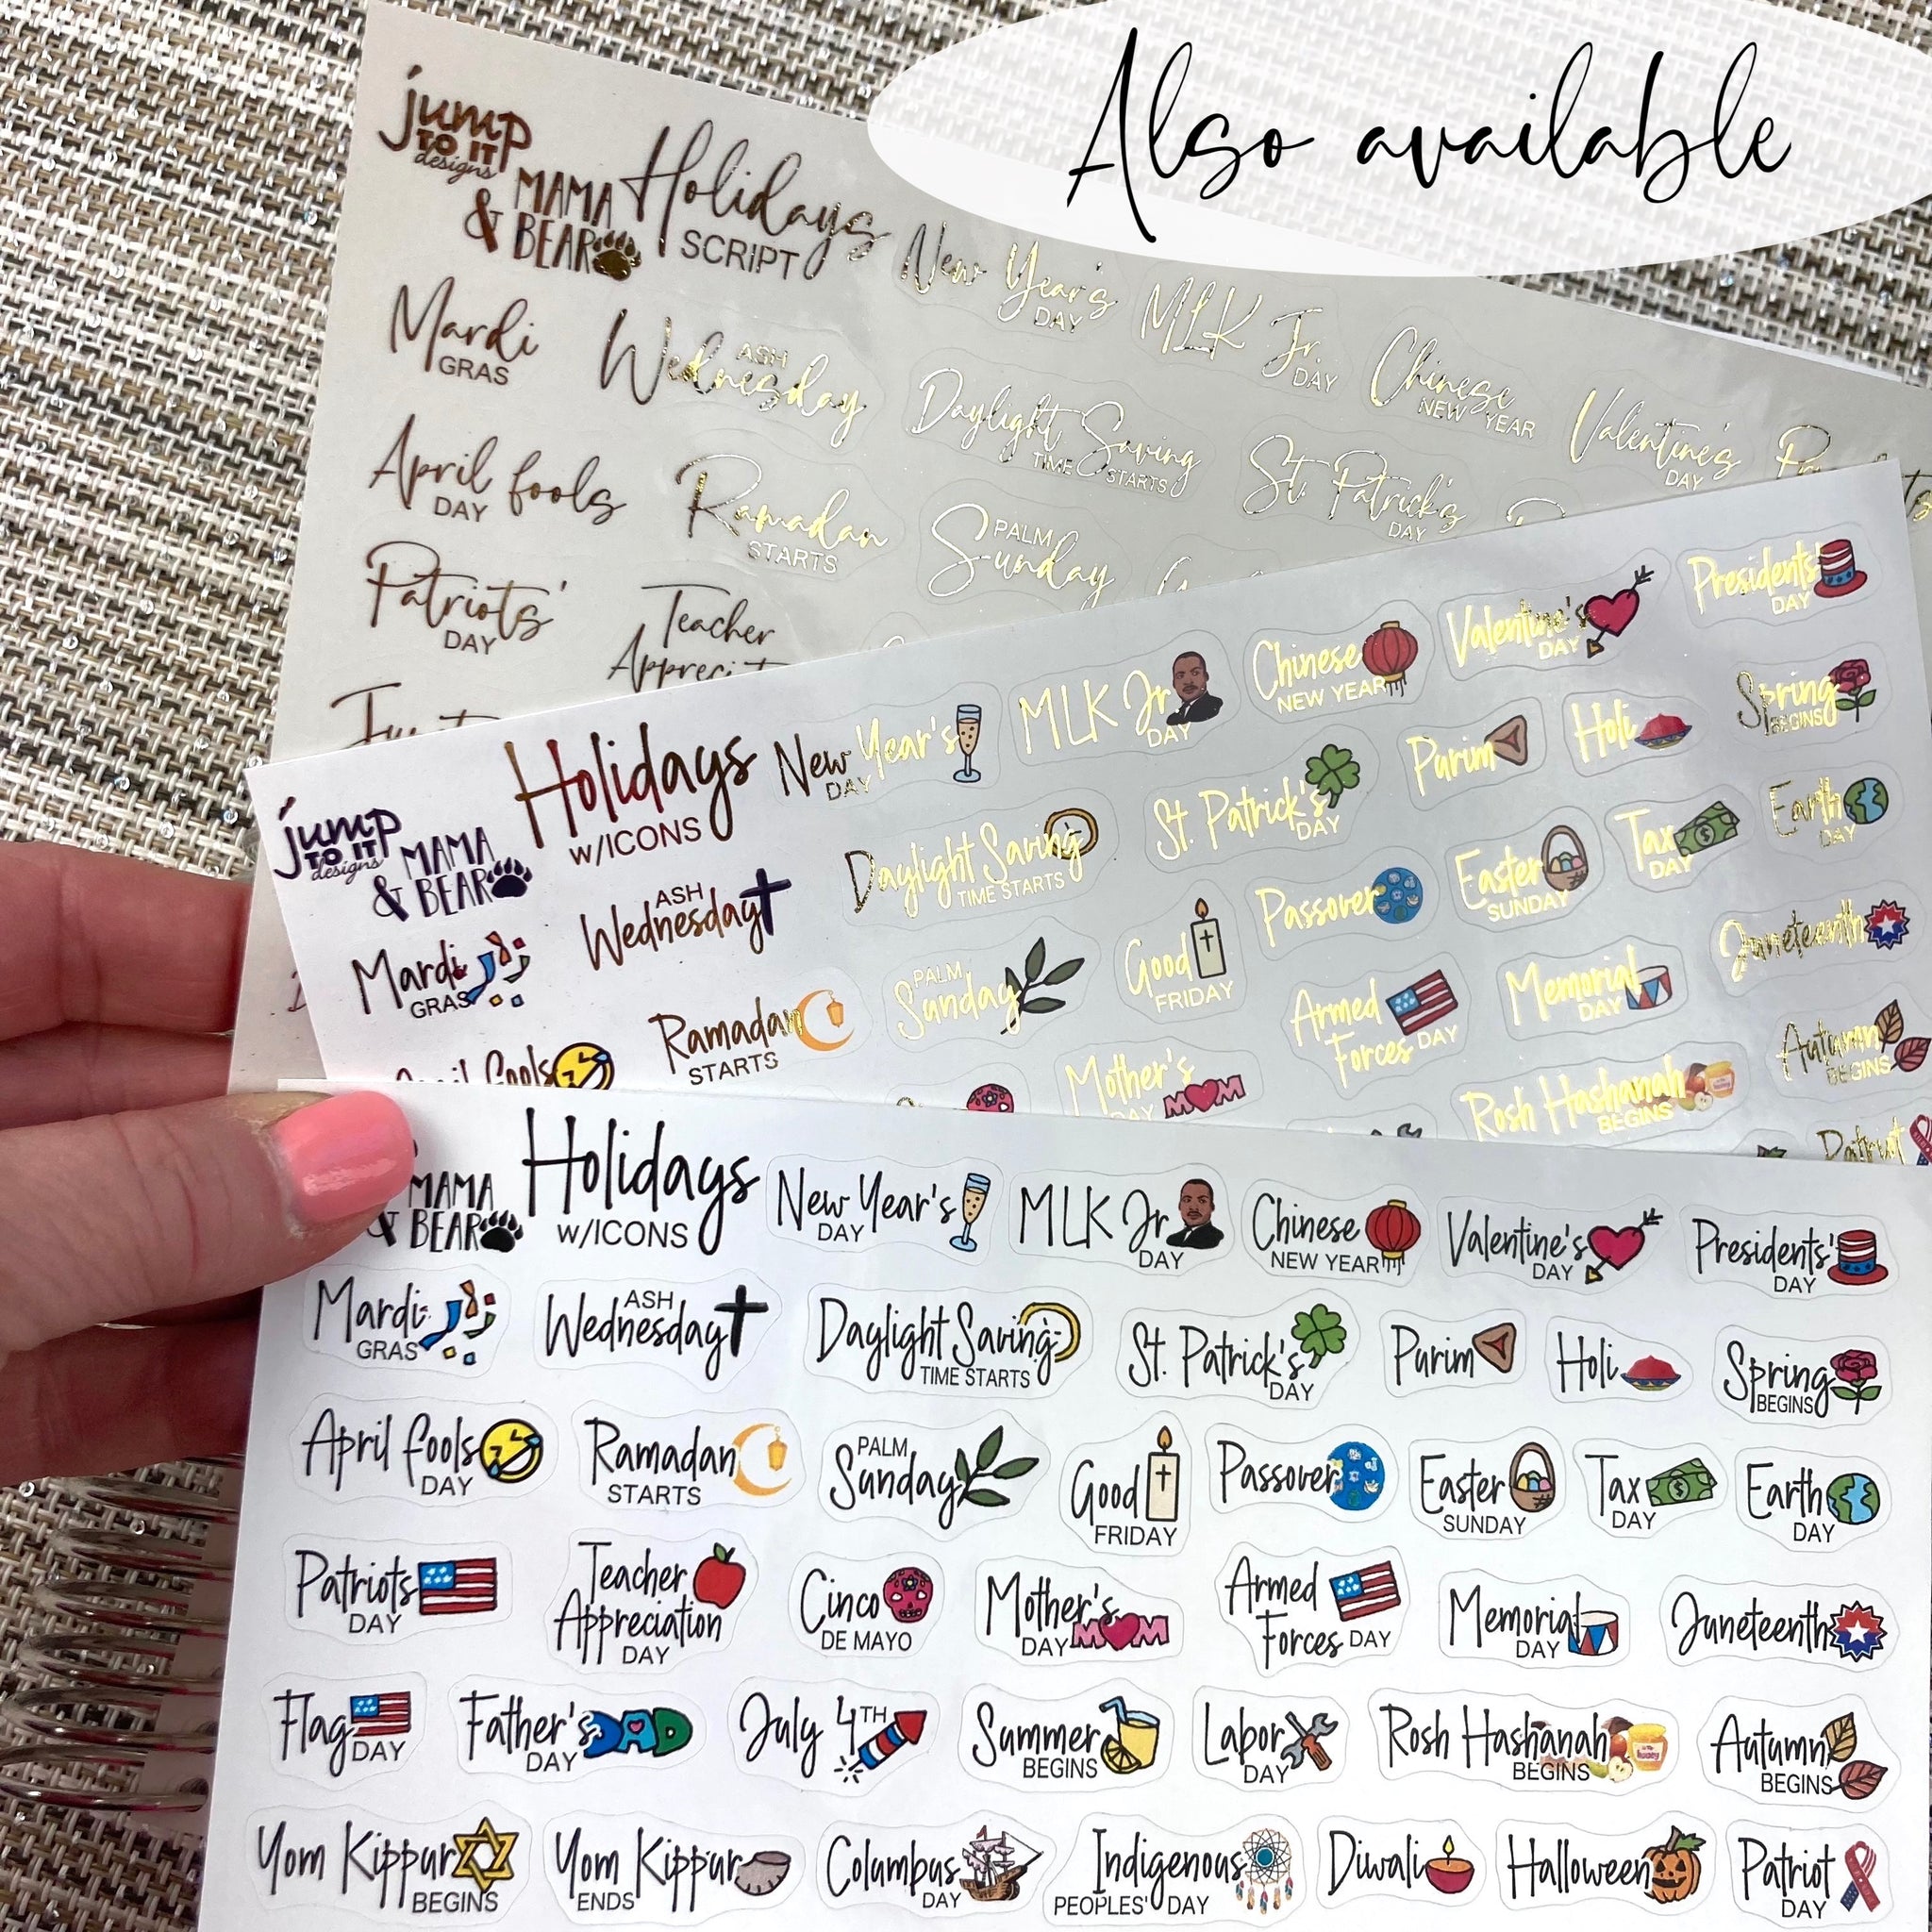 Also available
jump
TO IT
designs
& MAMA
BEAR
Holidays
SCRIPT
New Year's
DAY
MLK Jr.
DAY
Chinese
NEW YEAR
Valentine's
DAY
Mardi
GRAS
ASH
Wednesday
Daylight Saving
TIME STARTS
St. Patrick's
DAY
April fools
DAY
Ramadan
STARTS
PALM
Sunday
Patriots'
DAY
Teacher
jump
TO IT
designs
MAMA
& BEAR
Holidays
w/ICONS
New Year's
DAY
MLK Jr
DAY
Chinese
NEW YEAR
Valentine's
DAY
Presidents'
DAY
Mardi
GRAS
ASH
Wednesday
Daylight Saving
TIME STARTS
St. Patrick's
DAY
Purim
Holi
Spring
BEGINS
April fools
Ramadan
STARTS
PALM
Sunday
Good
FRIDAY
Passover
Easter
SUNDAY
Tax
DAY
Earth
DAY
Mother's
DAY MOM
Armed
Forces DAY
Memorial
DAY
Juneteenth
Rosh Hashanah
BEGINS
Autumn
BEGINS
Patriot
MAMA
& BEAR
Holidays
w/ICONS
New Year's
DAY
MLK Jr
DAY
Chinese
NEW YEAR
Valentine's
DAY
Presidents'
DAY
Mardi
GRAS
ASH
Wednesday
Daylight Saving
TIME STARTS
St. Patrick's
DAY
Purim
Holi
Spring
BEGINS
April fools
DAY
Ramadan
STARTS
PALM
Sunday
Good
FRIDAY
Passover
Easter
SUNDAY
Tax
DAY
Earth
DAY
Patriots
DAY
Teacher
Appreciation
DAY
Cinco
DE MAYO
Mother's
DAY MOM
Armed
Forces DAY
Memorial
DAY
Juneteenth
Flag
DAY
Father's
DAY DAD
July 4TH
Summer
BEGINS
Labor
DAY
Rosh Hashanah
BEGINS
Autumn
BEGINS
Yom Kippur
BEGINS
Yom Kippur
ENDS
Columbus
DAY
Indigenous
PEOPLES' DAY
Diwali
Halloween
Patriot
DAY